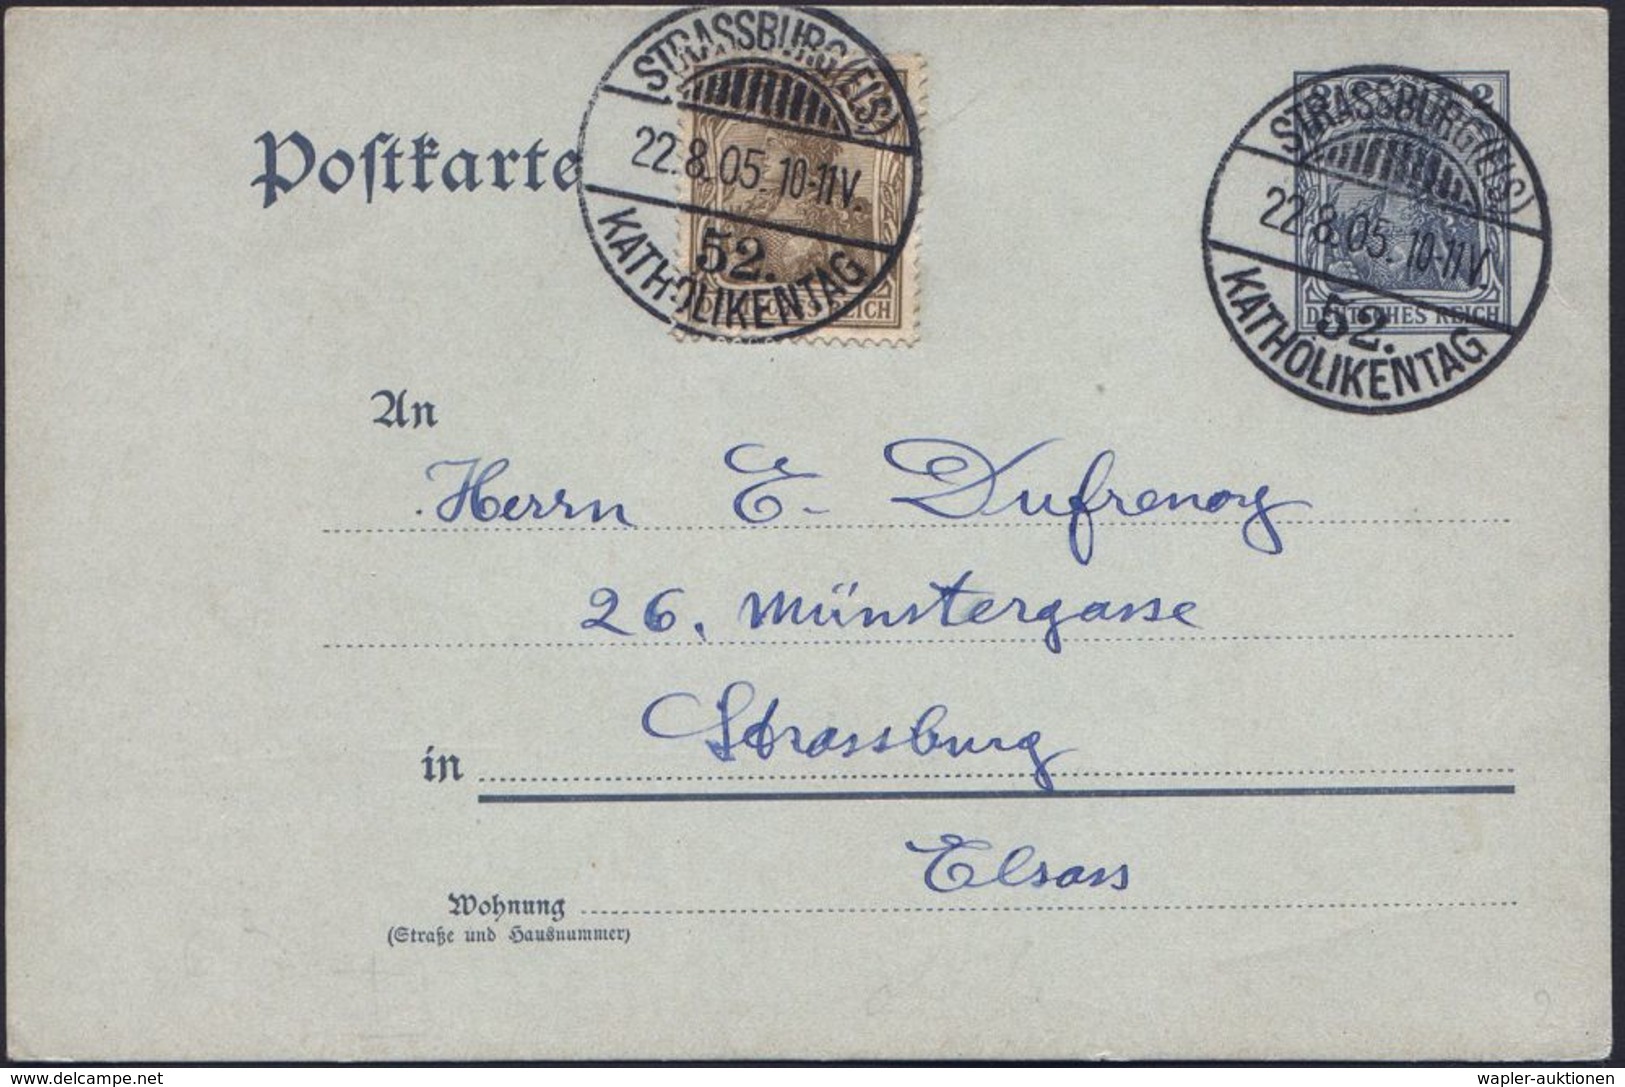 STRASSBURG (ELS)
22.8.05. 10-11V.
52.
KATHOLIKENTAG
REICH
STRASSBURG (ELS)
2
22.8.05. 10-11V.
52.
KATHOLIKENTAG
DEUTSCHES REICH
Postkarte
An
Herrn E. Dufrenoy
26, Münstergasse
in Strassburg
Elsass
Wohnung
(Straße und Hausnummer)
DELCAMPE.NET
wapler-auktionen